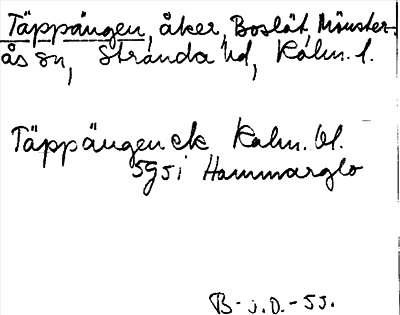 Täppängen, åker, Boslät, Mönster-
ås sn, Stranda hd, Kalm. l.
Täppängen ek Kalm. bl.
5951 Hammarglo
B-j. O. - 53.